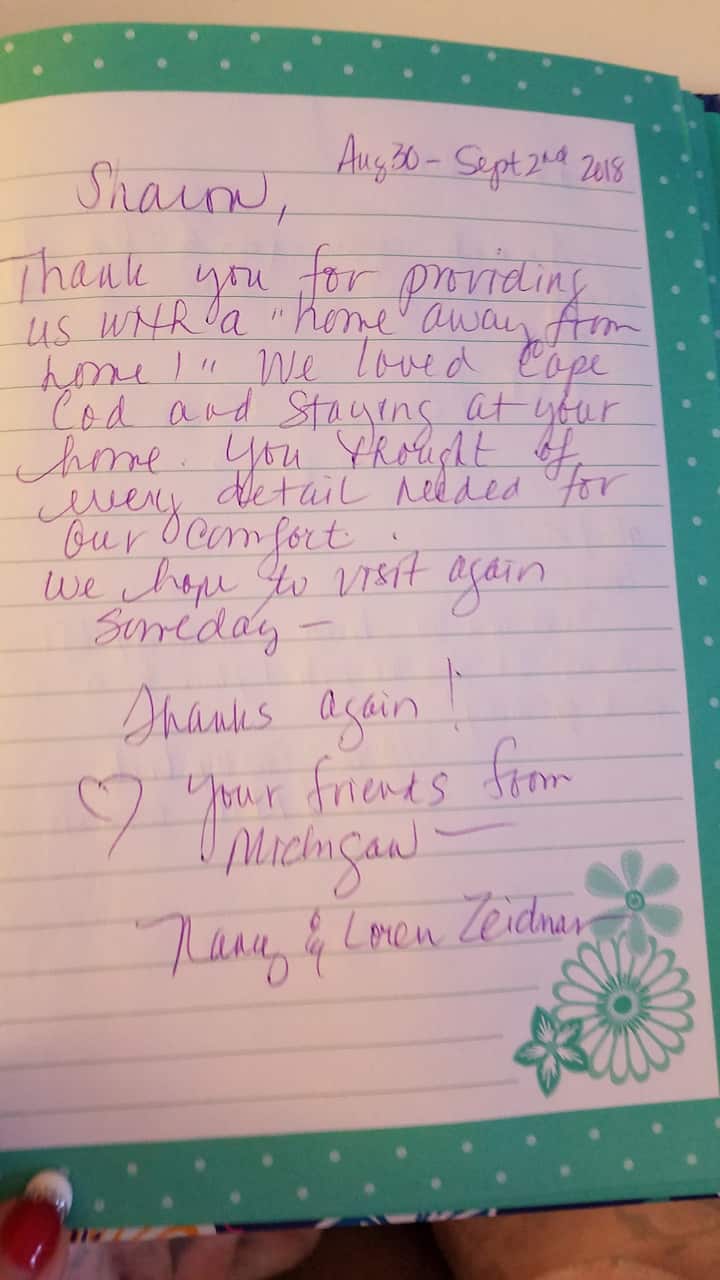 Aug 30 - Sept 2nd 2018
Sharon,
Thank you for providing
us with a "home away from
home!" We loved Cape
Cod and staying at your
home. You thought of
every detail needed for
our comfort.
We hope to visit again
someday —
Thanks again!
♡ Your friends from
Michigan —
Nancy & Loren Zeidner